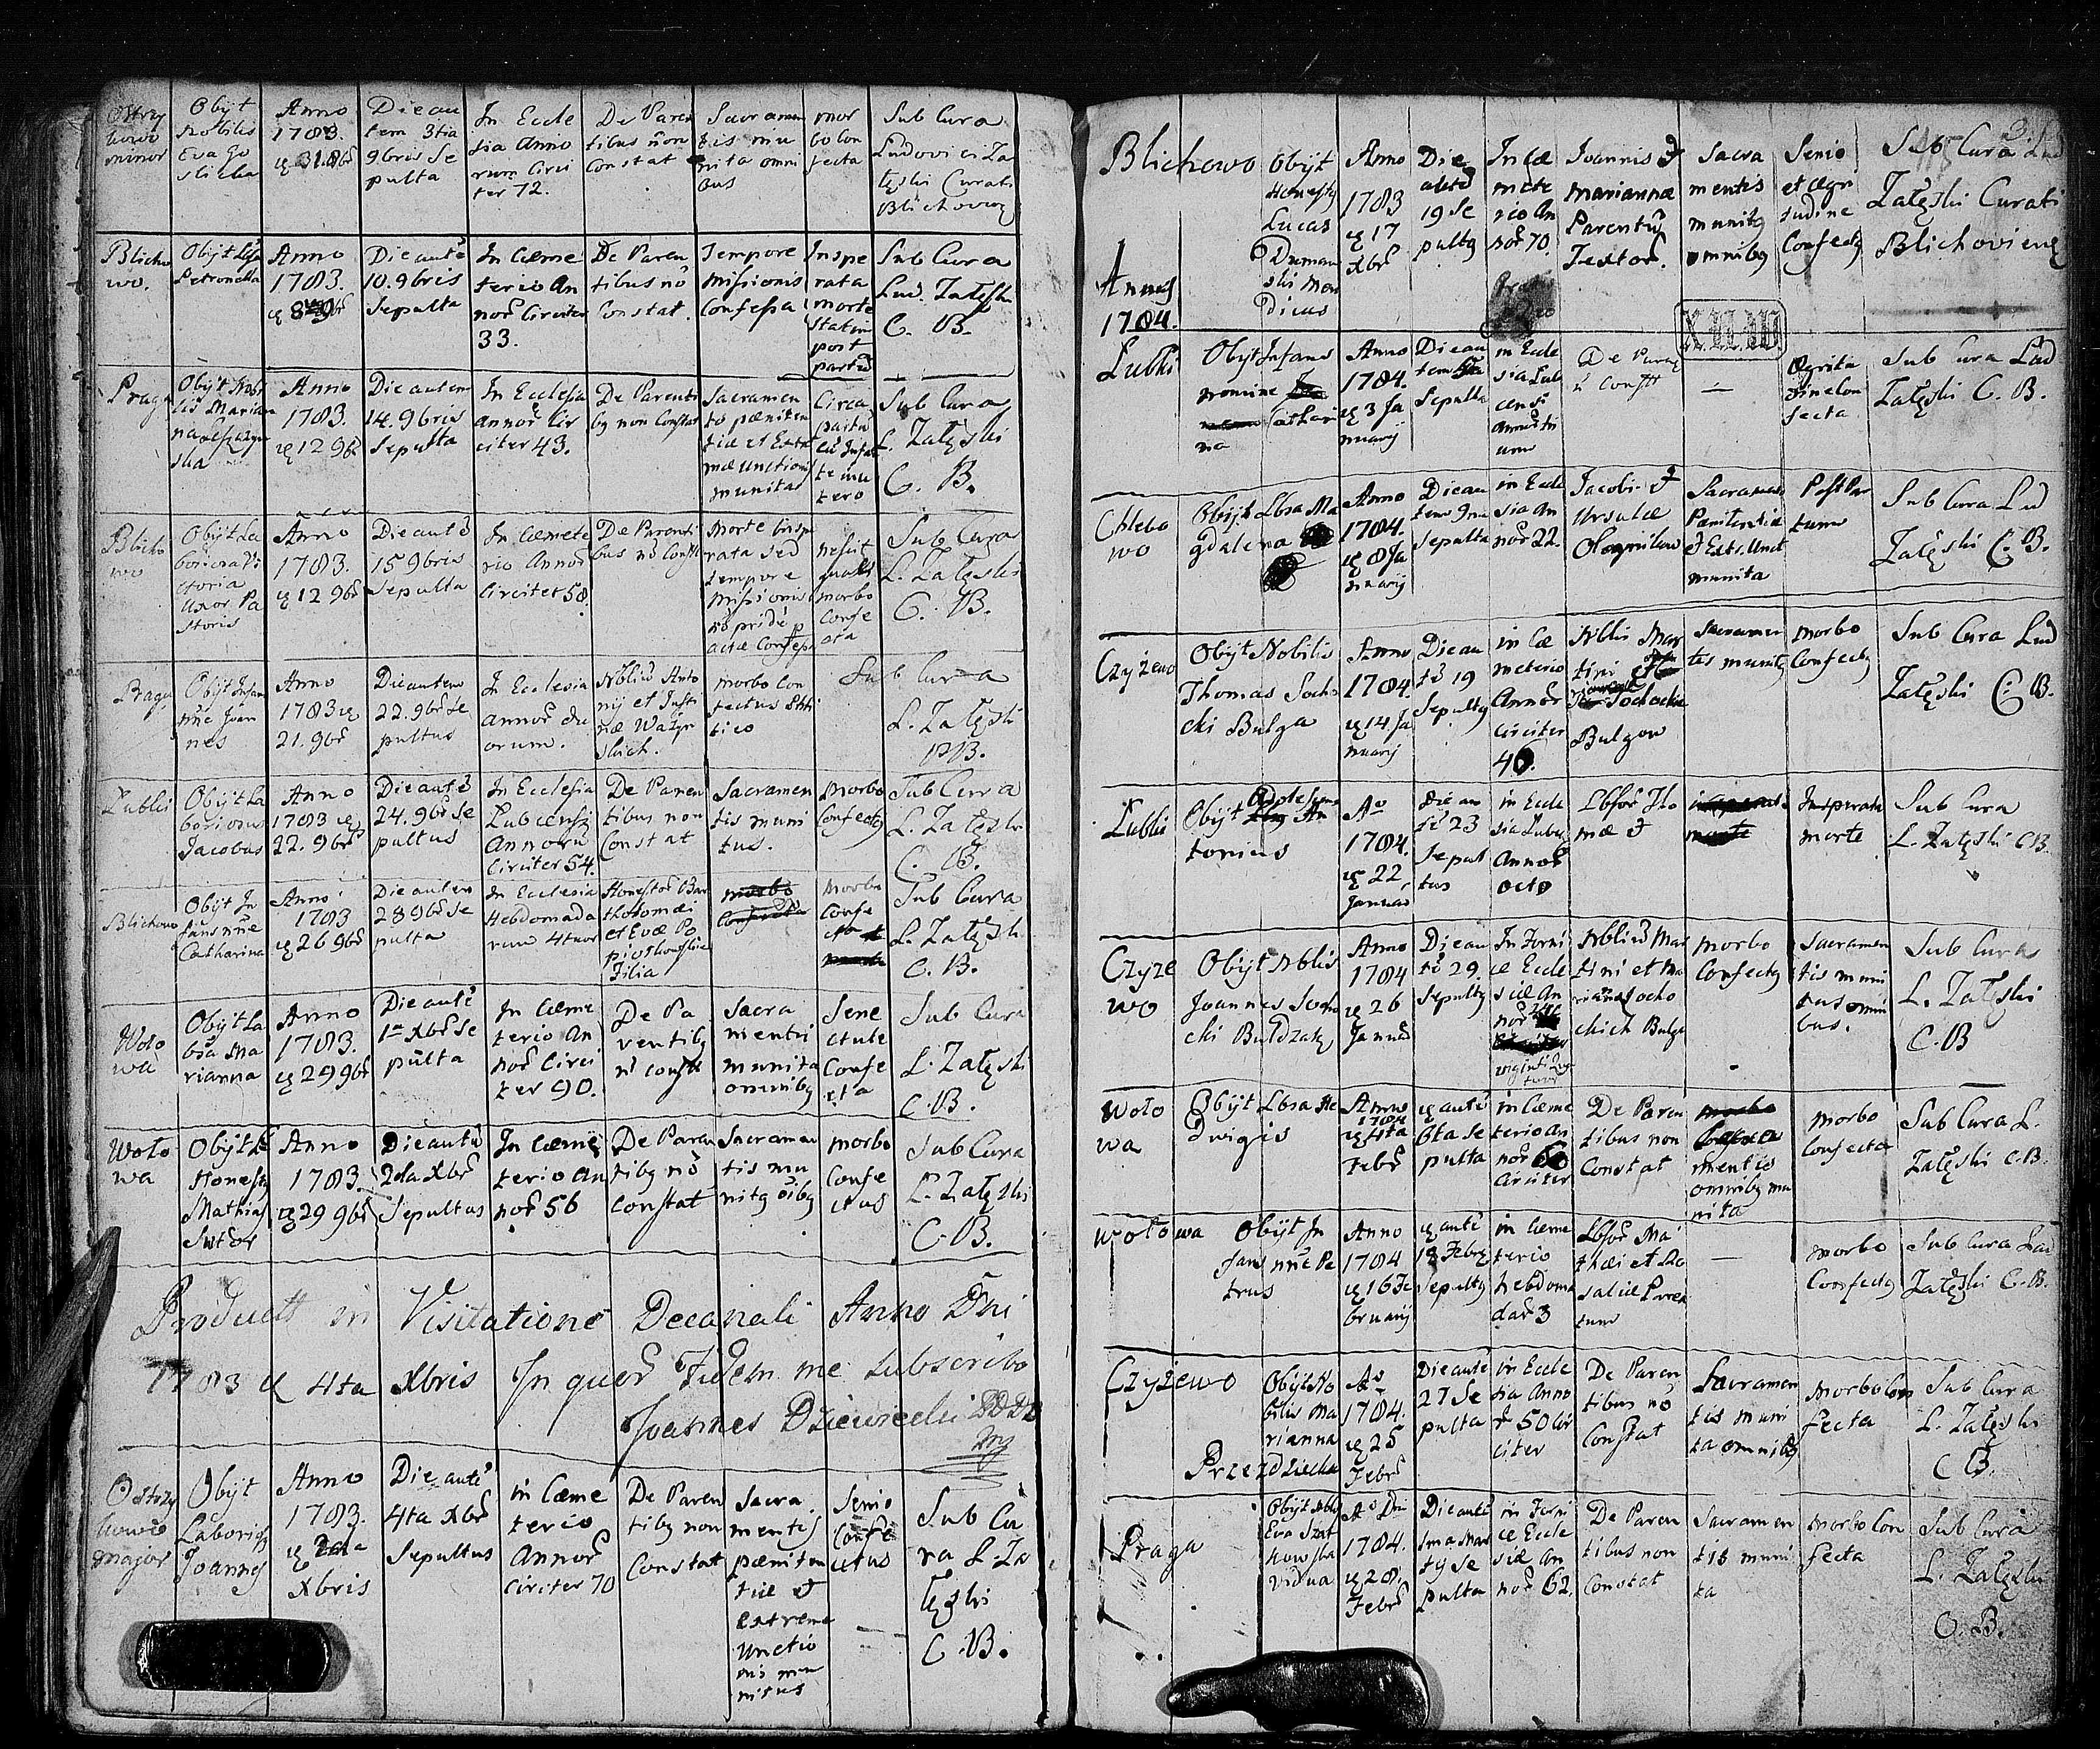 Obijt
Nobilis
Eva Go
slicka
Anno
1783.
31. 8br
Die au
tem 3tia
9bris Se
pulta
In Eccle
sia Anno
rum Circi
ter 72.
De Paren
tibus non
Constat
Sacramen
tis mu
nita omni
bus
mor
bo Con
fecta
Sub Cura
Ludovici Za
łęski Curati
Blichovien
Blicho
wo.
Petronella
Anno
1783.
Die autē
10. 9bris
Sepulta
In Cæme
terio An
nor Circiter
33.
De Paren
tibus nō
Constat.
Tempore
Missionis
Confessa
Inspe
rata
morte
statim
post
partū
Sub Cura
Lud. Załęski
C. B.
Praga
Obijt Nobi
lis Marian
na
ska
Anno
1783.
12 9br
Die autem
14. 9bris
Sepulta
In Ecclesia
annor Cir
citer 43.
De Parenti
bq non Constat
Sacramen
to pœniten
tiæ et Extre
mæ unctionis
munita
Circa
partū
te in u
tero
Sub Cura
L. Załęski
C. B.
Blicho
wo
Obijt La
boriosa Vi
ctoria
uxor Pa
storis
Anno
1783.
12 9br
Die autē
15 9bris
Sepulta
In Cæmete
rio Annor
Circiter 58.
De Parenti
bus nō Const
Morte insp
rata sed
tempore
Missionis
nescit
quali
morbo
Confe
cta
Sub Cura
L. Załęski
C. B.
Praga
Obijt Infans
nne Joan
nes
Anno
1783
21. 9br
Die autem
22. 9br Se
pultus
In Ecclesia
annor du
orum.
Nbliū Anto
nij et Justi
næ
morbo Con
fectus
Sub Cura
L. Załęski
Lubki
Obijt La
boriosus
Jacobus
Anno
1783
22. 9br
Die autē
24. 9br Se
pultus
In Ecclesia
Lubcensi
Annorū
Circiter 54.
De Paren
tibus non
Constat
Sacramen
tis muni
tus.
Morbo
Confectq
Sub Cura
L. Załęski
C. B.
Blichowo
Obijt In
fans nne
Catharina
Anno
1783
26 9br
Die autem
28 9br Se
pulta
In Ecclesia
Hebdomada
rum 4tuor
Honestor Bar
tholomæi
et Evæ
Filia
Morbo
Confe
cta
Sub Cura
L. Załęski
C. B.
Woto
wa
Obijt La
bsa Ma
rianna
Anno
1783.
29 9br
Die autē
1a Xbr Se
pulta
In Cæme
terio An
nor Circi
ter 90.
De Pa
rentibq
nō const
Sacra
mentis
munita
omnibq
Sene
ctute
Confe
cta
Sub Cura
L. Załęski
C. B.
Woto
wa
Obijt
Honestq
Mathias
Sutor
Anno
1783.
29 9br
Die autē
2da Xbr
Sepultus
In Cæme
terio An
nor 56
De Paren
tibq nō
Constat
Sacramen
tis mu
nitq oibq
Morbo
Confe
ctus
Sub Cura
L. Załęski
C. B.
Product in Visitatione Decanali Anno Dni
1783 4ta Xbris In quor Fidem me subscribo
Joannes Dziewiecki
Ostrzy
kowo
major
Obijt
Laboriosq
Joannes
Anno
1783.
2da
Xbris
Die autē
4ta Xbr
Sepultus
in Cæme
terio
Annor
Circiter 70
De Paren
tibq non
Constat
Sacra
mentis
pœniten
tiæ et
extreme
Unctio
nis mu
nitus
Senio
Confe
ctus
Sub Cu
ra L Za
łęski
C. B.
Blichowo
Obijt
Honestq
Lucas
Duman
ski Men
dicus
Anno
1783
17
Xbr
Die
19 Se
pultq
In Cæ
mete
rio An
nor 70.
Joannis et
Mariannæ
Parentū
Textor.
Sacra
mentis
munitq
omnibq
Senio
et ægri
tudine
Confectq
Sub Cura Lud
Załęski Curati
Blichoviens
Annus
1784.
Lubki
Obijt Infans
nomine
Cathari
na
Anno
1784.
3 Ja
nuarij
Die au
tem 5ta
Sepulta
in Eccle
sia Lub
censi
De Paren
Constt
Ægritu
dine Con
fecta
Sub Cura Lud
Załęski C. B.
Chlebo
wo
Obijt Lbsa Ma
gdalena
Anno
1784.
8 Ja
nuarij
Die au
tem 9na
Sepulta
in Eccle
sia An
nor 22.
Jacobi et
Ursulæ
Sacramen
Pœnitentiæ
et Ext. Unct
munita
Post Par
tum
Sub Cura Lud
Załęski C. B.
Czyżewo
Obijt Nobilis
Thomas Socho
cki Bulga
Anno
1784.
14. Ja
nuarij
Die au
tē 19
Sepultq
in Cæ
meterio
Annor
Circiter
40.
Nblis Mar
tini et
Sochockie
Bulgow
Sacramen
tis munitq
Morbo
Confectq
Sub Cura Lud
Załęski C. B.
Lubki
Obijt Adolescens
An
tonius
Ao
1784.
22
Januar
Die au
tē 23
Sepul
tus
in Eccle
sia Lubc
Annor
octo
Lbsor Tho
mæ et
Insperata
morte
Sub Cura
L. Załęski C B.
Czyże
wo
Obijt Nblis
Joannes Socho
cki
Anno
1784
26
Januar
Die au
tē 29.
Sepultq
In Forni
ce Eccle
siæ An
nor
viginti
Nbliū Mar
tini et Ma
rianna Socho
ckich Bulg
Morbo
Confectq
Sacramen
tis muni
tus omni
bus.
Sub Cura
L. Załęski
C. B
Woto
wa
Obijt Lbsa He
dvigis
Anno
1784
4ta
Febr
autē
6ta Se
pulta
in Cæme
terio An
nor 60
Circiter
De Paren
tibus non
Constat
mentis
omnibq mu
nita
Morbo
Confecta
Sub Cura L.
Załęski C. B.
Wotowa
Obijt In
fans nne Pe
trus
Anno
1784
16 Fe
bruarij
autē
18 Febrq
Sepultq
in Cæme
terio
hebdoma
dar 3
Lbsor Ma
thæi et Ro
saliæ Paren
tum
Morbo
Confectq
Sub Cura Lud
Załęski C. B.
Czyżewo
Obijt No
bilis Ma
rianna
Przezdziecka
Ao
1784.
25
Febr
Die autē
27 Se
pulta
in Eccle
sia Anno
r 50 Cir
citer
De Paren
tibus nō
Constat
Sacramen
tis muni
ta omnibq
Morbo Con
fecta
Sub Cura
L. Załęski
C B.
Praga
Obijt Nblis
Eva Szat
kowska
vidua
Ao Dni
1784.
28.
Febr
Die autē
1ma Mar
tij Se
pulta
in Forni
ce Eccle
siæ An
nor 62.
De Paren
tibus non
Constat
Sacramen
tis muni
ta
Morbo Con
fecta
Sub Cura
L. Załęski
C. B.